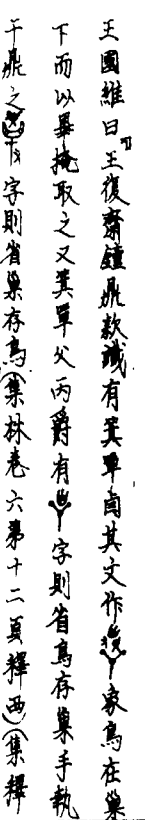 王國維曰「王復齋鐘鼎款識有箕單卣其文作象鳥在巢
下而以畢掩取之又箕單父丙爵有字則省鳥存巢手執
干鼎之字則省巢存鳥(集林卷六第十二頁釋西)(集釋